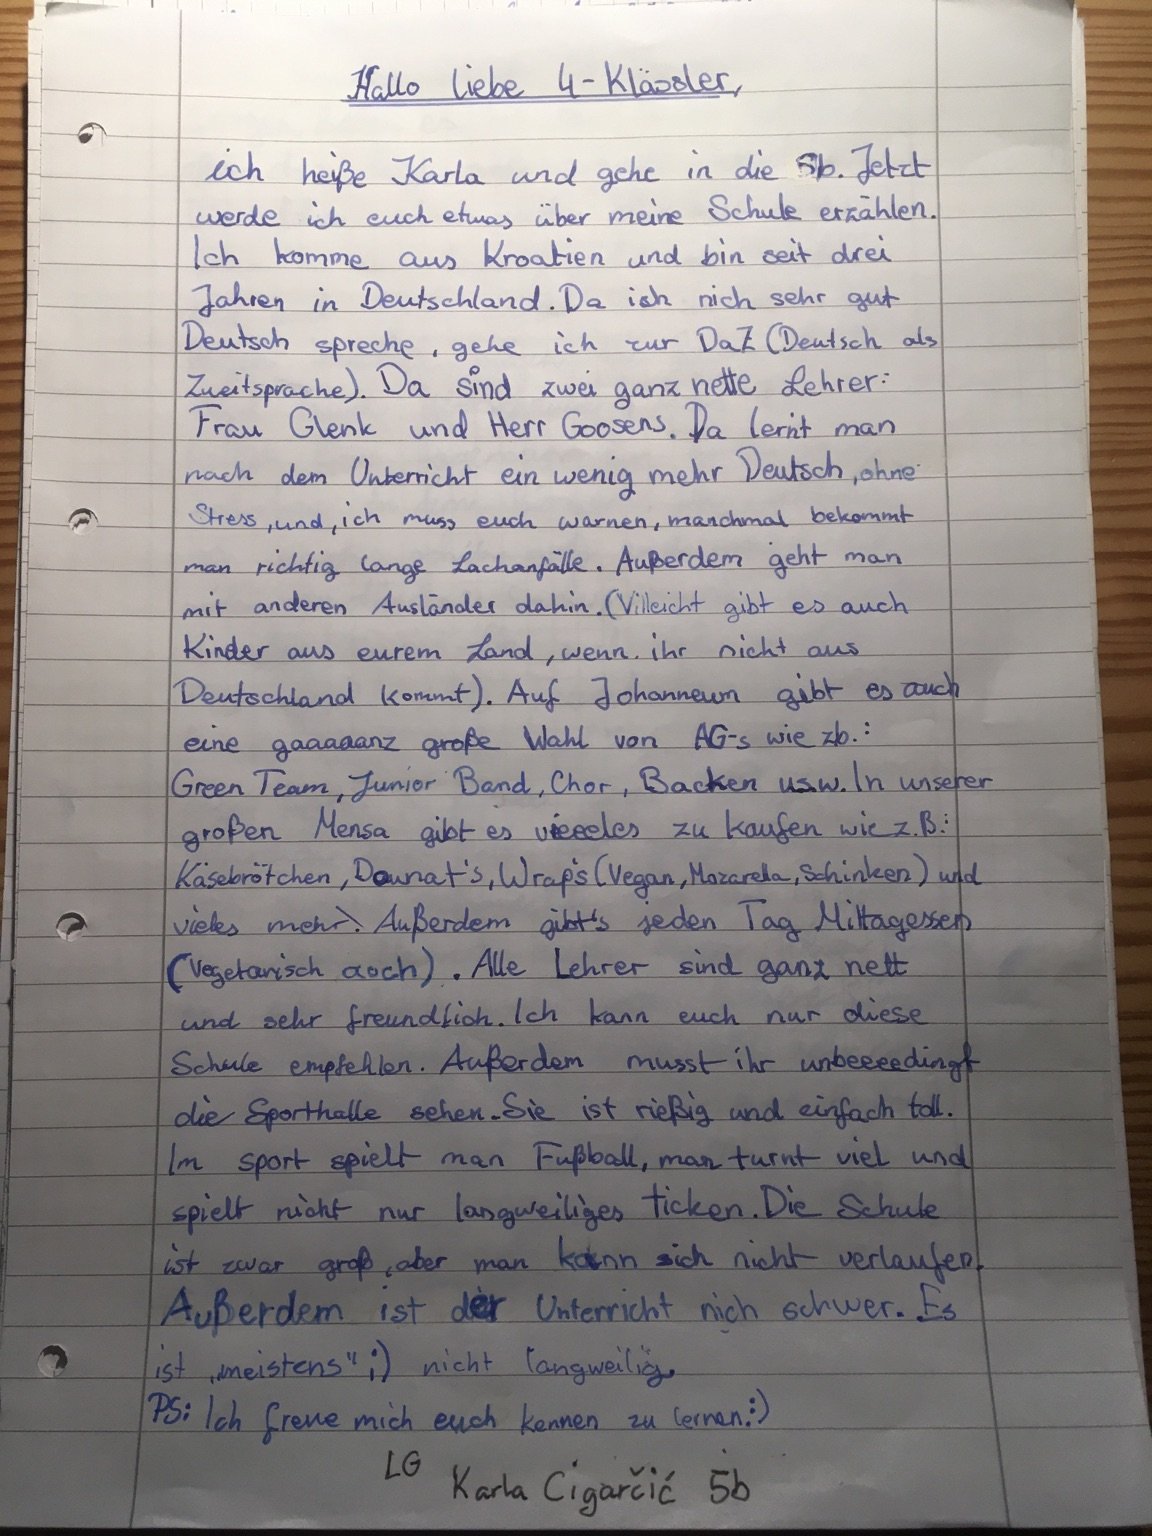 Hallo liebe 4-Klässler,
ich heiße Karla und gehe in die 5b. Jetzt
werde ich euch etwas über meine Schule erzählen.
Ich komme aus Kroatien und bin seit drei
Jahren in Deutschland. Da ich nich sehr gut
Deutsch spreche, gehe ich zur DaZ (Deutsch als
Zweitsprache). Da sind zwei ganz nette Lehrer:
Frau Glenk und Herr Goosens. Da lernt man
nach dem Unterricht ein wenig mehr Deutsch, ohne
Stress, und, ich muss euch warnen, manchmal bekommt
man richtig lange Lachanfälle. Außerdem geht man
mit anderen Ausländer dahin. (Villeicht gibt es auch
Kinder aus eurem Land, wenn ihr nicht aus
Deutschland kommt). Auf Johanneum gibt es auch
eine gaaaaanz große Wahl von AG-s wie zb.:
Green Team, Junior Band, Chor, Backen usw. In unserer
großen Mensa gibt es vieeeles zu kaufen wie z.B.:
Käsebrötchen, Dounat's, Wrap's (Vegan, Mozarella, Schinken) und
vieles mehr). Außerdem gibt's jeden Tag Mittagessen
(Vegetarisch auch). Alle Lehrer sind ganz nett
und sehr freundlich. Ich kann euch nur diese
Schule empfehlen. Außerdem musst ihr unbeeeedingt
die Sporthalle sehen. Sie ist rießig und einfach toll.
Im sport spielt man Fußball, man turnt viel und
spielt nicht nur langweiliges ticken. Die Schule
ist zwar groß, aber man kann sich nicht verlaufen.
Außerdem ist der Unterricht nich schwer. Es
ist „meistens" ;) nicht langweilig.
PS: Ich freue mich euch kennen zu lernen. :)
LG
Karla Cigarčić 5b